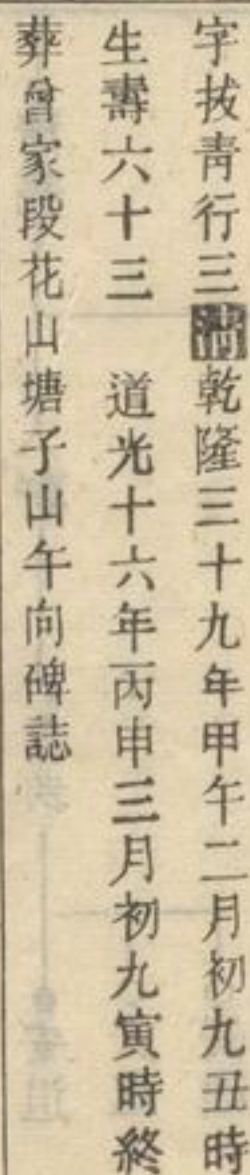 字拔青行三清乾隆三十九年甲午二月初九丑時
生壽六十三　道光十六年丙申三月初九寅時終
葬曾家段花山塘子山午向碑誌